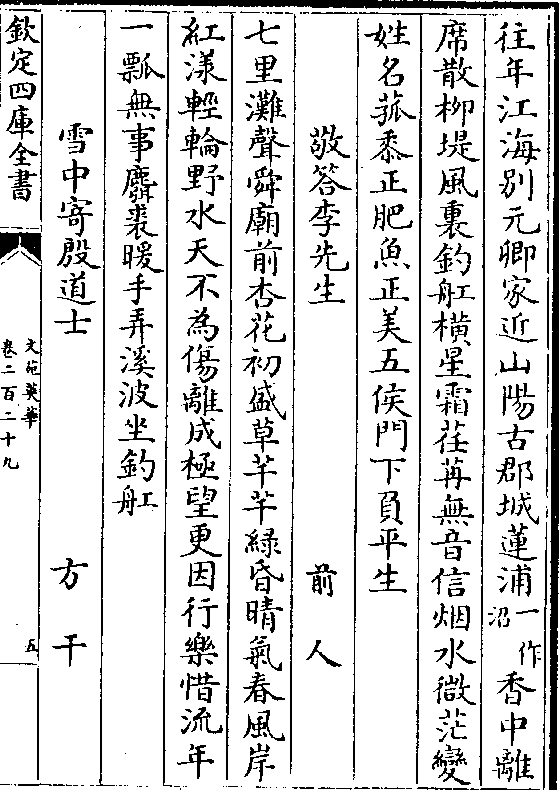 往年江海别元卿家近山陽古郡城蓮浦一作沼香中離
席散栁堤風裏釣舡横星霜荏苒無音信烟水微茫變
姓名菰黍正肥魚正美五侯門下負平生
敬答李先生 前人
七里灘聲舜廟前杏花初盛草芊芊綠昏晴氣春風岸
紅漾輕輪野水天不為傷離成極望更因行樂惜流年
一瓢無事麛裘暖手弄溪波坐釣舡
雪中寄殷道士 方干
欽定四庫全書
文苑英華
卷二百二十九
五